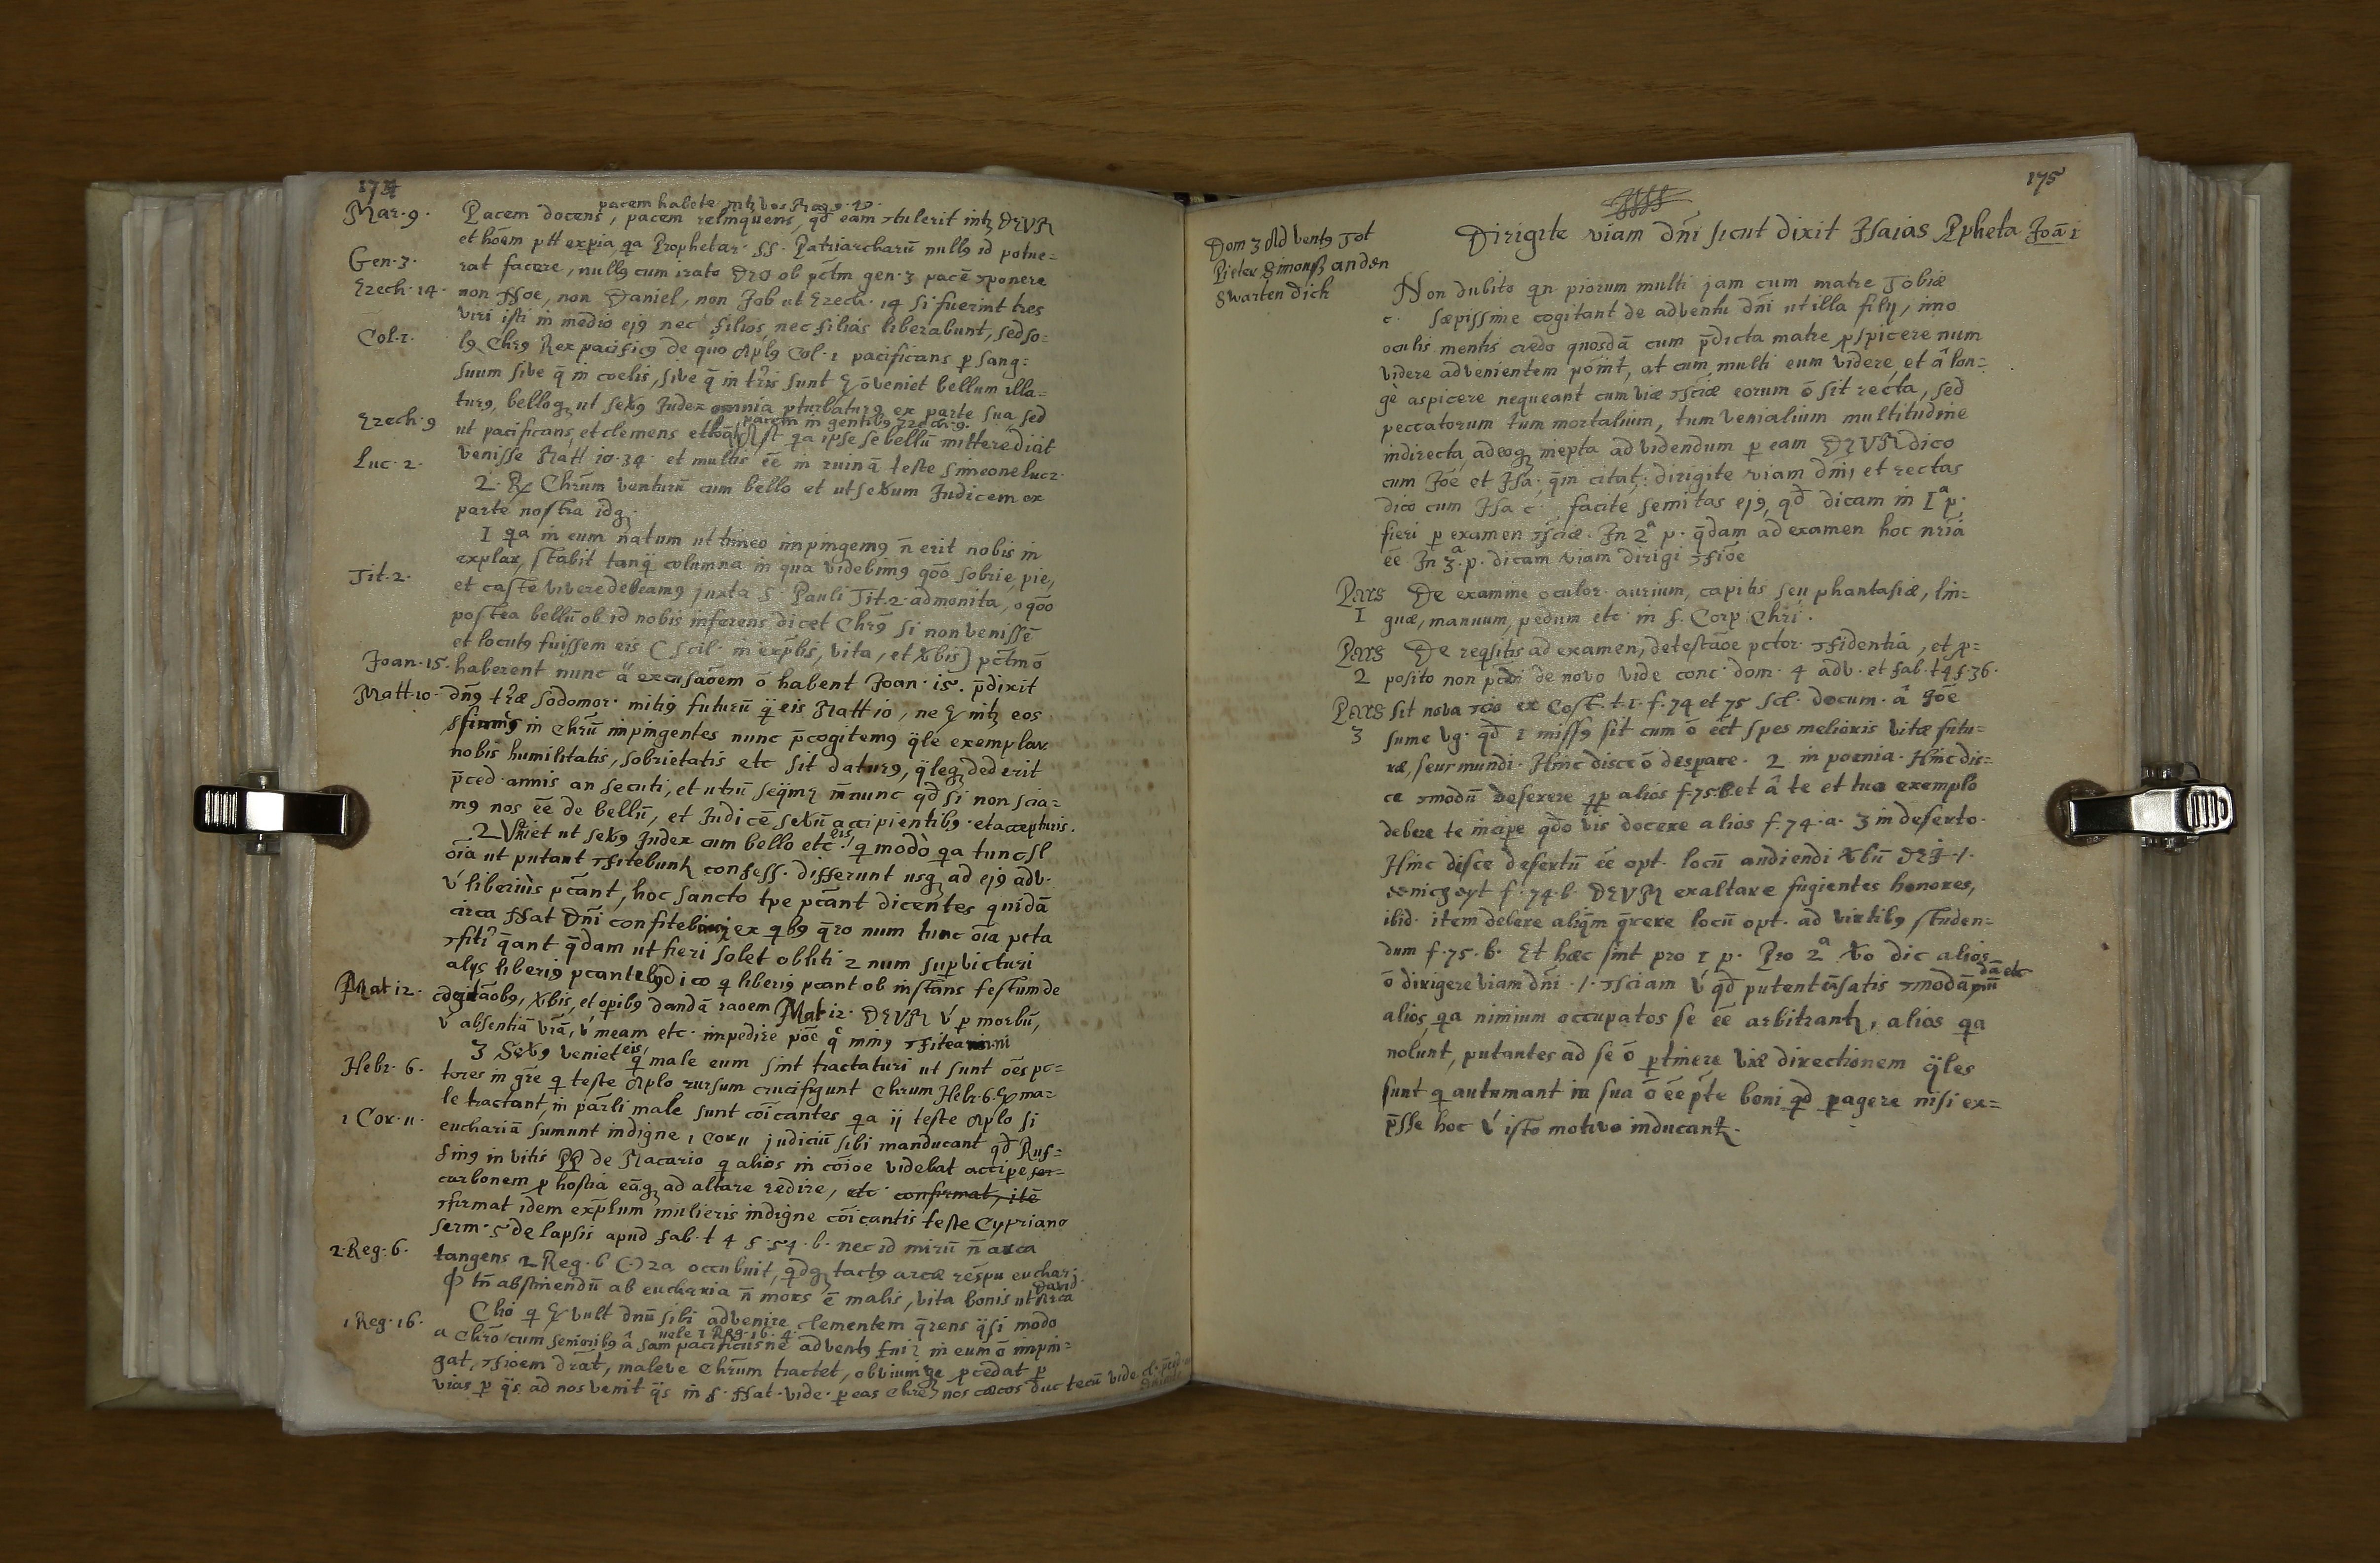 174
pacem habete intz vos Marc 9. 49.
Mar. 9. Pacem docens, pacem relinquens, qd eam ɔtulerit intz DEUM
et hōem ptt expia qa Prophetar. SS. Patriarcharū null9 id potue=
Gen. 3. rat facere, null9 cum irato DEO ob pctm gen. 3 pacē ɔponere
Ezech. 14. non Noe, non Daniel, non Job ut Ezech. 14 si fuerint tres
viri isti in medio ej9 nec filios, nec filias liberabunt, sed so=
Col. 1. l9 Chr9 Rex pacific9 de quo Apl9 Col. 1 pacificans p sang:
suum sive q̄ in coelis, sive q̄ in tris sunt & ō veniet bellum illa=
tur9, belloqz ut sev9 Judex omnia pturbatur9 ex parte sua sed
pacem in gentib9 Zech. 9.
Ezech. 9 ut pacificans, et clemens qa ipse se bellū mittere dicit
Luc. 2. venisse Matt 10. 34. et multis ēe in ruinā teste Simeone luc 2.
2. Rx Chrum venturū cum bello et ut sevum Judicem ex
parte nostra idqz
1 qa in eum natum ut timeo impingem9 n̄ erit nobis in
explar, stabit tanq̄ columna in qua videbim9 qōo sobrie, pie,
Tit. 2. et caste vivere debeam9 juxta S. Pauli Tit. 2. admonita, o qōo
postea bellū ob id nobis inferens dicet Chr9 si non venissē
et locut9 fuissem eis (scil. in explis, vita, et vbis) pctm ō
Joan. 15. haberent nunc ā excusaōem ō habent Joan. 15. p̄dixit
Matt. 10. dn̄9 træ Sodomor. miti9 futurū q̄ eis Matt 10, ne & intz eos
sim9 in Chrū impingentes nunc p̄cogitem9 q̄le exemplar
nobis humilitatis, sobrietatis etc sit datur9, q̄leqz dederit
p̄ced. annis an secuti, et utrū seq̄mz nunc qd si non scia=
m9 nos ēe de bellū, et Judicē sevū accipientib9. et accepturis.
2 Veniet ut sev9 Judex cum bello etc. eis q modo qa tunc sl
oīa ut putant ɔfitebuntz confess. differunt usqz ad ej9 adv.
v liberius pcant, hoc sancto tpe pcant dicentes quidā
circa Nat Dn̄i confitebimz ex qb9 q̄ro num tunc oīa pcta
ɔfiti q̄ant q̄dam ut fieri solet obliti 2 num supvicturi
alijs liberi9 pcantely dico q liberi9 pcant ob instans festum de
Mat 12. cogitaōb9, vbis, et opib9 dandā raoem Mat 12. DEUM v p morbū,
v absentiā vrā, v meam etc. impedire pōe q̊ min9 ɔfiteamini
3 Sev9 veniet eis q male eum sint tractaturi ut sunt ōes pc=
Hebr. 6. tores in gre q teste Aplo rursum crucifigunt Chrum Hebr. 6. & ma=
le tractant, in parli male sunt coīcantes qa ij teste Aplo si
1 Cor. 11. euchariā sumunt indigne 1 Cor 11 judiciū sibi manducant qd Ruf=
fin9 in vitis PP de Macario q alios in coīoe videbat accipe
carbonem p hostia eāqz ad altare redire, etc. confirmat, itē
ɔfirmat idem explum mulieris indigne coīcantis teste Cypriano
serm. 5 de lapsis apud Fab. t 4 f. 54. b. nec id mirū n̄ arca
2. Reg. 6. tangens 2 Reg. 6 Oza occubuit, qdqz tact9 arcæ respu euchari.
tn̄ abstinendū ab eucharia n̄ mors ē malis, vita bonis ut Arca David
Chō q & vult dnū sibi advenire clementem q̄rens q̄si modo
1 Reg. 16. a Chrō cum seniorib9 â Sam pacificusne advent9 tui? in eum ō impin=
uele 1 Reg. 16. 4.
gat, ɔfioem , maleve Chrum tractet, obviumqe pcedat p
vias p q̄s ad nos venit q̄s in f. Nat. vide. p eas Chre nos cœcos duc tecū vide
175
Dom 3 Advent9 Tot
Pieter Simonsz anden
Swarten dick
Dirigite viam dn̄i sicut dixit Isaias Ppheta Joā 1
Non dubito qn piorum multi jam cum matre Tobiæ
c. sæpissime cogitant de adventu dn̄i ut illa filij, imo
oculis mentis credo quosdā cum p̄dicta matre pspicere num
videre advenientem point, at cum multi eum videre, et â lon=
gè aspicere nequeant cum viæ ɔsciæ eorum ō sit recta, sed
peccatorum tum mortalium, tum venialium multitudine
indirecta, adeoqz inepta ad videndum p eam DEUM dico
cum Jōe et Isa. q̄m citat: dirigite viam dn̄i, et rectas
dico cum Isa c. facite semitas ej9, qd dicam in 1ª p.
fieri p examen ɔsciæ. In 2ª p. q̄dam ad examen hoc nr̄ia
ēe In 3ª. p. dicam viam dirigi ɔfiōe
Pars De examine oculor. aurium, capitis seu phantasiæ, lin=
1 guæ, manuum, pedum etc. in f. Corp Chri.
Pars De reqsitis ad examen, detestaōe pctor. ɔfidentiâ, et p=
2 posito non pcdi de novo vide conc. dom. 4 adv. et Fab. t 4 f. 36.
Pars sit nova ɔcio ex Cost. t. 1. f. 74 et 75 scl. docum. â Jōe
3 sume vg. qd 1 miss9 sit cum ō ect spes melioris vitæ futu=
ræ, seu mundi. Hinc disce ō despare. 2 in poenia. Hinc dis=
ce ɔmodū deferere pp alios f. 75 b et â te et tuo exemplo
debere te incipe qdo vis docere alios f. 74. a. 3 in deserto.
Hinc disce desertū ēe opt. locū audiendi vbū DEI ./.
eenicheyt f. 74. b DEUM exaltare fugientes honores,
ibid. item debere aliq̄m q̄rere locū opt. ad virtib9 studen=
dum f. 75. b. Et hæc sint pro 1 p. Pro 2ª vo dic alios
ō dirigere viam dn̄i ./. ɔsciam v qd putent satis ɔmodā dā etc
alios qa nimium occupatos se ēe arbitrantz, alios qa
nolunt, putantes ad se ō ptinere viæ directionem q̄les
sunt q autumant in sua ō ēe pte boni qd pagere nisi ex=
p̄sse hoc v isto motivo inducantz.